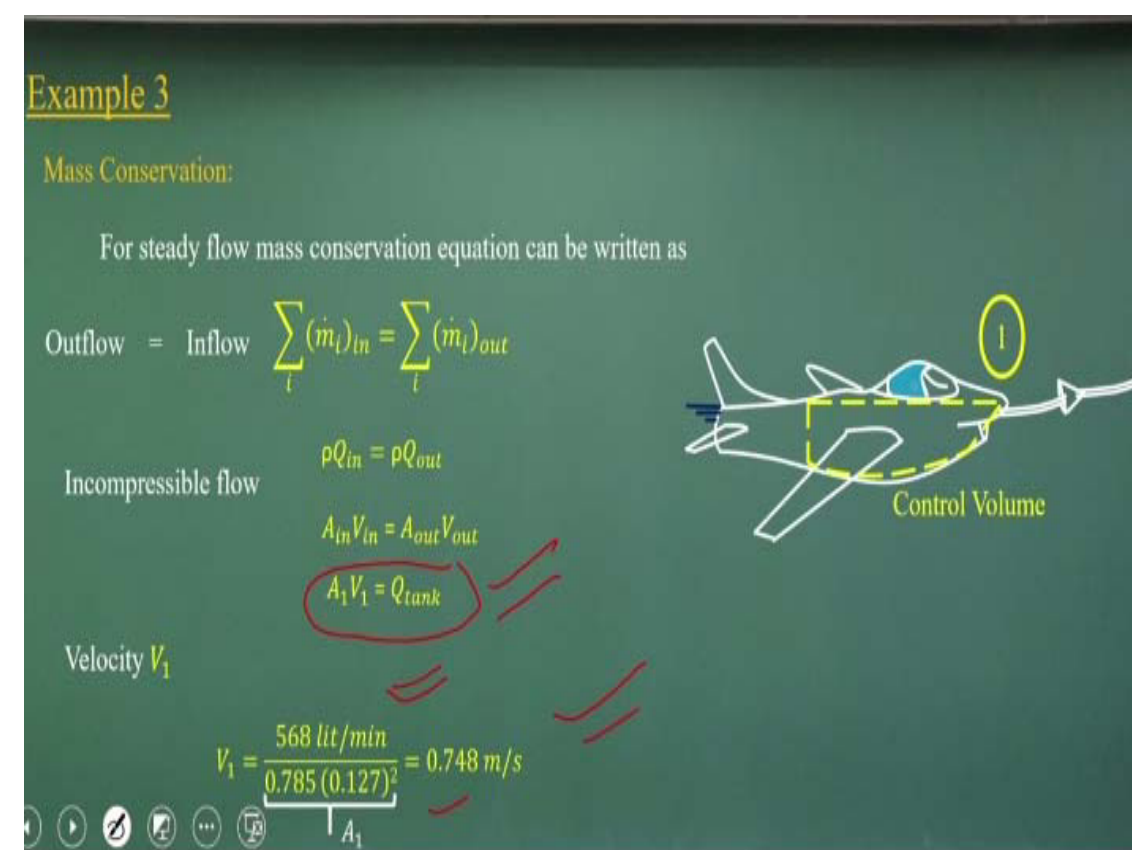 Example 3
Mass Conservation:
For steady flow mass conservation equation can be written as
Outflow = Inflow ∑ᵢ(ṁᵢ)ᵢₙ = ∑ᵢ(ṁᵢ)ₒᵤₜ
ρQ_in = ρQ_out
Incompressible flow
A_in V_in = A_out V_out
A₁V₁ = Q_tank
Velocity V₁
V₁ = 568 lit/min / 0.785 (0.127)² = 0.748 m/s
A₁
1
Control Volume